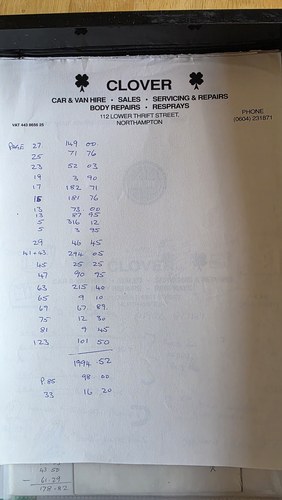 CLOVER
CAR & VAN HIRE • SALES • SERVICING & REPAIRS
BODY REPAIRS • RESPRAYS
112 LOWER THRIFT STREET,
NORTHAMPTON
PHONE
(0604) 231871
PAGE 27 149 00
25 71 76
23 52 03
19 3 90
17 182 71
15 181 76
13 73 00
13 87 95
5 316 12
5 3 95
29 46 45
41 + 43 294 05
45 25 25
47 90 95
63 215 40
65 9 10
69 67 89
75 12 30
81 9 45
123 101 50
1994 52
P. 85 98 00
33 16 20
61.29
178.02